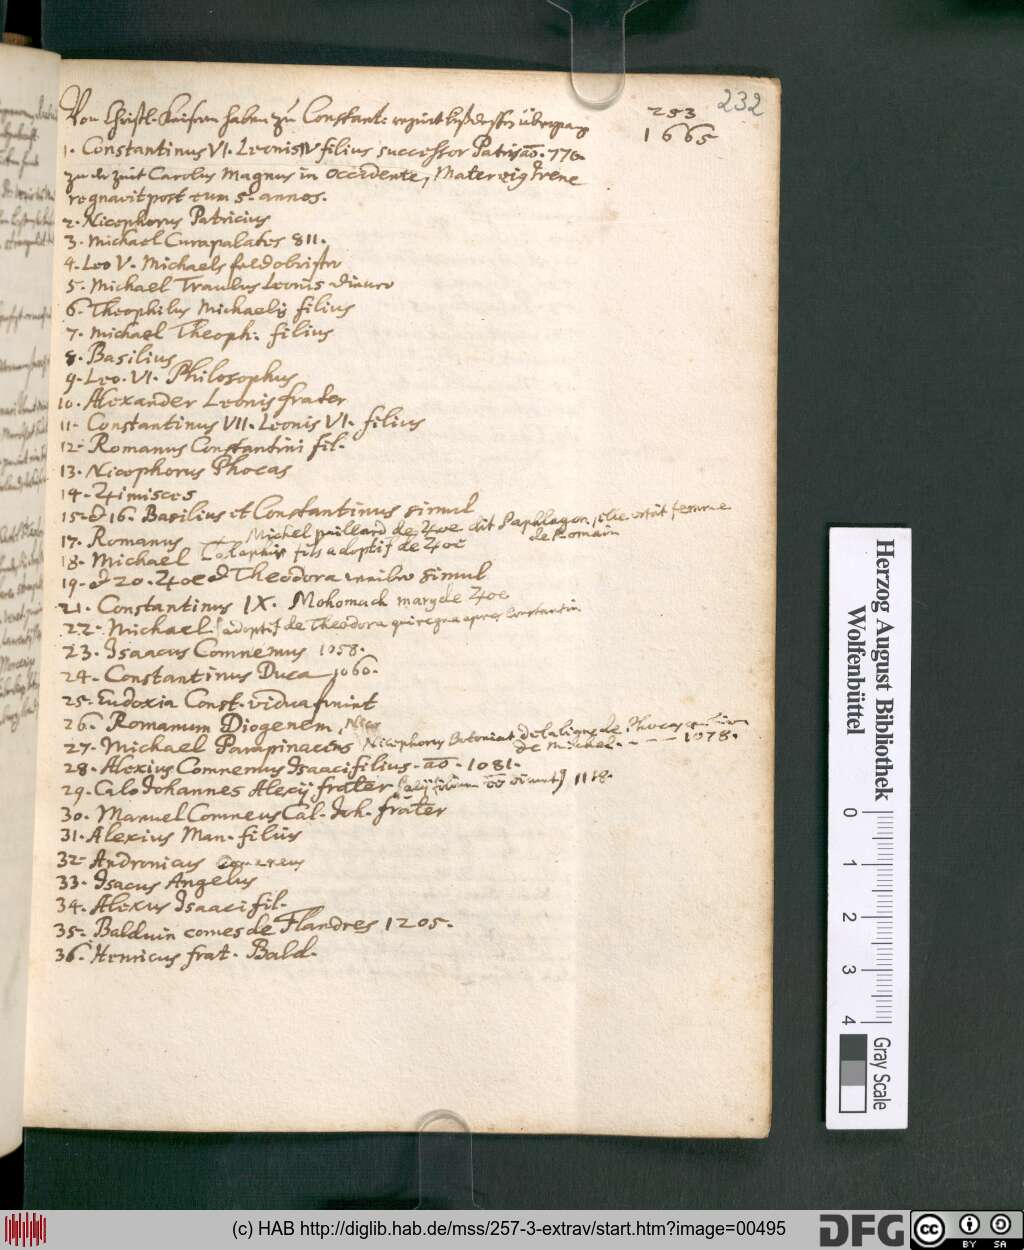 232
253
1665
Von Christl. Kaisern haben zu Constant: regiret biß dessen übergang
1. Constantinus VI. Leonis IV filius successor Patris ao. 776
zu der zeit Carolus Magnus in occidente, Mater eig Irene
regnavit post eum 5. annos.
2. Nicephorus Patricius
3. Michael Curapalates 811.
4. Leo V. Michaels feldobrister
5. Michael Traulus Leonis
6. Theophilus Michaelis filius
7. Michael Theoph: filius
8. Basilius
9. Leo. VI. Philosophus
10. Alexander Leonis frater
11. Constantinus VII. Leonis VI. filius
12. Romanus Constantini fil.
13. Nicephorus Phocas
14. Zimisces
15. & 16. Basilius et Constantinus simul
17. Romanus Michel paillard de Zoe dit Paphlagon, elle estät femme
de Romain
18. Michael Calaphis fils adoptif de Zoe
19. & 20. Zoe & Theodora simul
21. Constantinus IX. Mohomach mary de Zoe
22. Michael adoptif de Theodora qui regna apres Constantin
23. Isaacus Comnenus 1058.
24. Constantinus Duca 1060.
25. Eudoxia Const. vidua
26. Romanum Diogenem,
27. Michael Parapinacens Nicephorus Botoniat de la ligne de Phocas
de Michel. - - - 1078.
28. Alexius Comnenus Isaaci filius. ao. 1081.
29. Calo Johannes Alexij frater 1118.
30. Manuel Comneus Cal. Joh. frater
31. Alexius Man. filius
32. Andronicus
33. Isacus Angelus
34. Alexus Isaaci fil.
35. Balduin comes de Flandres 1205.
36. Henricus frat. Bald.
Herzog August Bibliothek
Wolfenbüttel
0 1 2 3 4
Gray Scale
(c) HAB http://diglib.hab.de/mss/257-3-extrav/start.htm?image=00495
DFG
cc BY SA